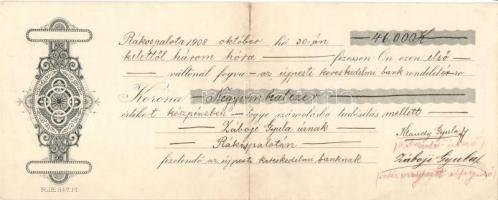 Rákospalota 1908 október hó 30-án 46.000 K
kelettől három hóra fizessen Ön ezen első
váltónál fogva az újpesti kereskedelmi bank rendeletére
Korona Negyvenhatezer
értéket készpénzben s tegye számadásba tudósítás mellett
Zábojé Gyula úrnak
Rákospalotán
fizetendő az újpesti kereskedelmi banknak
Gyula
Zábojé Gyula
R.J.E. 347.17